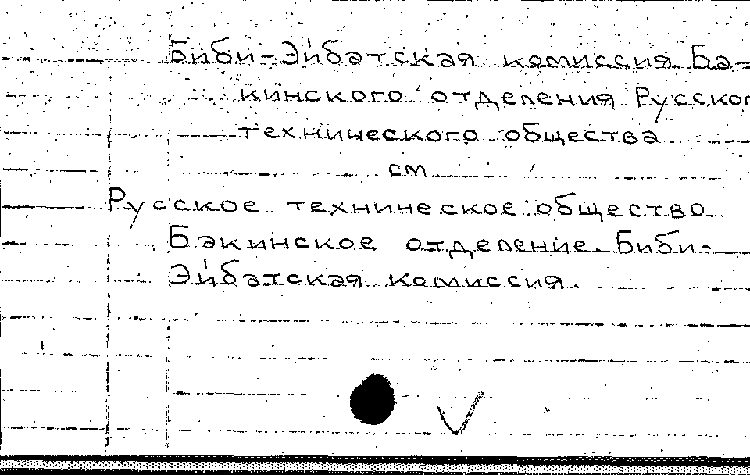 Биби-Эйбатская комиссия Ба-
кинского отделения Русског
технического общества
см
Русское техническое общество
Бакинское отделение. Биби-
Эйбатская комиссия.